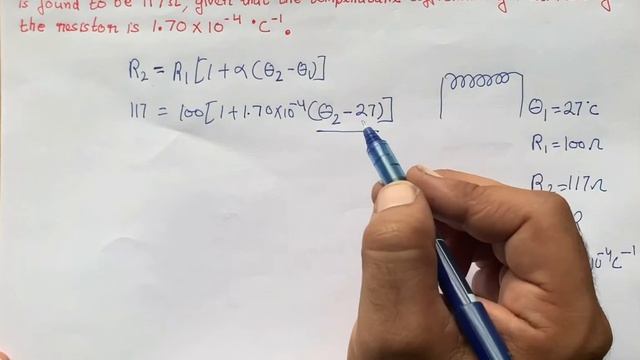 is found to be 117Ω, given that the
the resistor is 1.70 × 10⁻⁴ °C⁻¹.
R₂ = R₁[1 + α(θ₂ − θ₁)]
117 = 100[1 + 1.70×10⁻⁴(θ₂ − 27)]
θ₁ = 27°C
R₁ = 100Ω
R₂ = 117Ω
10⁻⁴C⁻¹